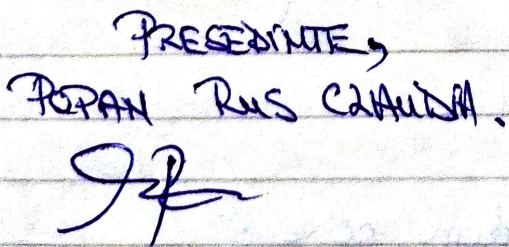 PRESEDINTE,
POPAN RUS CLAUDIA.